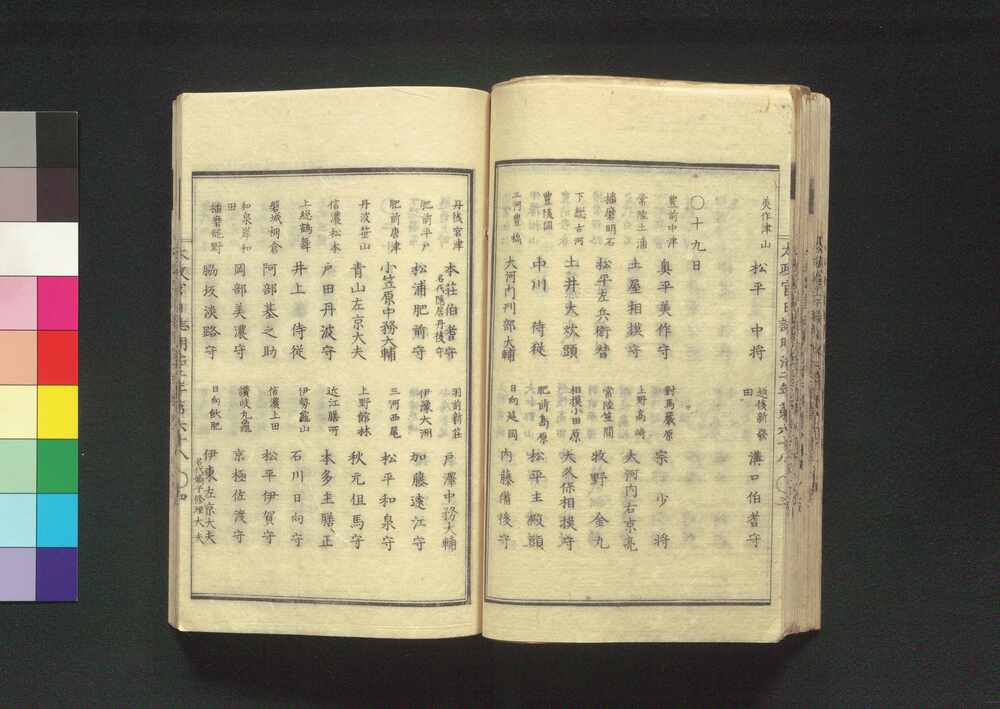 美作津山 松平中将
越後新発田 溝口伯耆守
〇十九日
豊前中津 奥平美作守
對馬嚴原 宗少将
常陸土浦 土屋相摸守
上野高崎 大河内右京亮
播磨明石 松平左兵衛督
常陸笠間 牧野金丸
下総古河 土井大炊頭
相摸小田原 大久保相摸守
豊後岡 中川侍従
肥前島原 松平主殿頭
三河豊橋 大河内刑部大輔
日向延岡 内藤備後守
丹後宮津 本荘伯耆守 名代隠居丹後守
羽前新荘 戸澤中務大輔
肥前平戸 松浦肥前守
伊豫大洲 加藤遠江守
肥前唐津 小笠原中務大輔
三河西尾 松平和泉守
丹波笹山 青山左京大夫
上野館林 秋元但馬守
信濃松本 戸田丹波守
近江膳所 本多主膳正
上総鶴舞 井上侍従
伊勢龜山 石川日向守
磐城棚倉 阿部基之助
信濃上田 松平伊賀守
和泉岸和田 岡部美濃守
讃岐丸龜 京極佐渡守
播磨龍野 脇坂淡路守
日向飫肥 伊東左京大夫 名代嫡子修理大夫